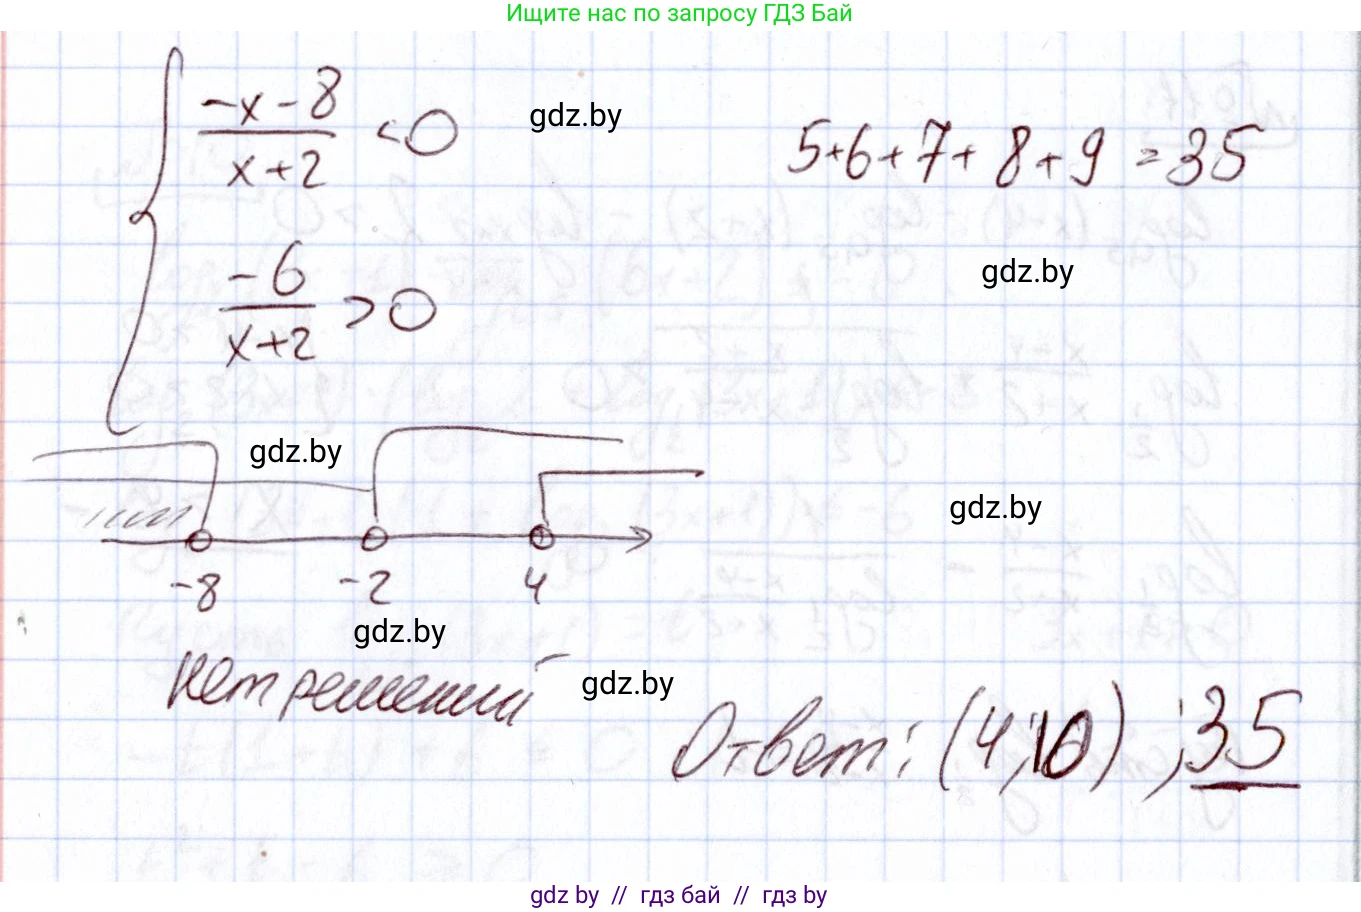 Ищите нас по запросу ГДЗ Бай
-x-8/x+2 <0
gdz.by
5+6+7+8+9=35
-6/x+2 >0
gdz.by
gdz.by
gdz.by
-8 -2 4
gdz.by
нет решений
gdz.by
Ответ: (4;10); 35
gdz.by // гдз бай // гдз.by